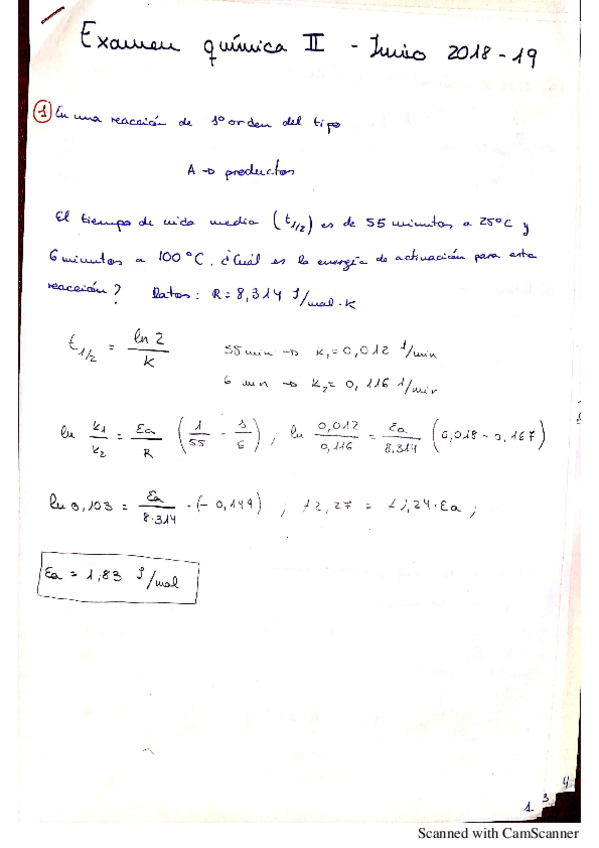 Examen química II - Junio 2018-19
1 En una reacción de 1º orden del tipo
A → productos
El tiempo de vida media (t1/2) es de 55 minutos a 25ºC y
6 minutos a 100ºC. ¿Cuál es la energía de activación para esta
reacción? Datos: R = 8,314 J/mol·K
t1/2 = ln 2 / K    55 min → K1 = 0,012 1/min
6 min → K2 = 0,116 1/min
ln K1/K2 = Ea/R (1/55 - 1/6) ; ln 0,012/0,116 = Ea/8.314 (0,018 - 0,167)
ln 0,103 = Ea/8.314 · (-0,149) ;
Ea = 1,83 J/mol
1 3 4
Scanned with CamScanner